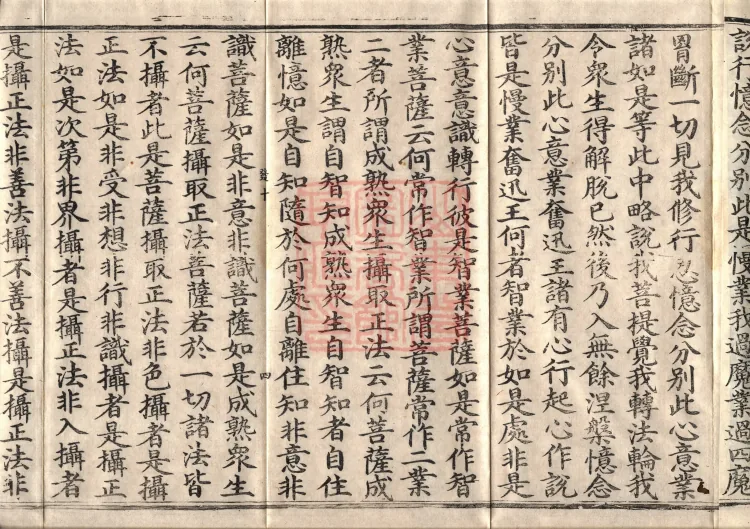 諸行憶念分別此是慢業我過魔業過四魔
胃斷一切見我修行忍憶念分別此心意業
諸如是等此中略說我菩提覺我轉法輪我
今衆生得解脫已然後乃入無餘涅槃憶念
分別此心意業奮迅王諸有心行起心作說
皆是慢業奮迅王何者智業於如是處非是
心意意識轉行彼是智業菩薩如是常作智
業菩薩云何常作智業所謂菩薩常作二業
二者所謂成熟衆生攝取正法云何菩薩成
熟衆生謂自智知成熟衆生自智知者自住
離憶如是自知隨於何處自離住知非意非
十
四
識菩薩如是非意非識菩薩如是成熟衆生
云何菩薩攝取正法菩薩若於一切諸法皆
不攝者此是菩薩攝取正法非色攝者是攝
正法如是非受非想非行非識攝者是攝正
法如是次第非界攝者是攝正法非入攝者
是攝正法非善法攝不善法攝是攝正法非